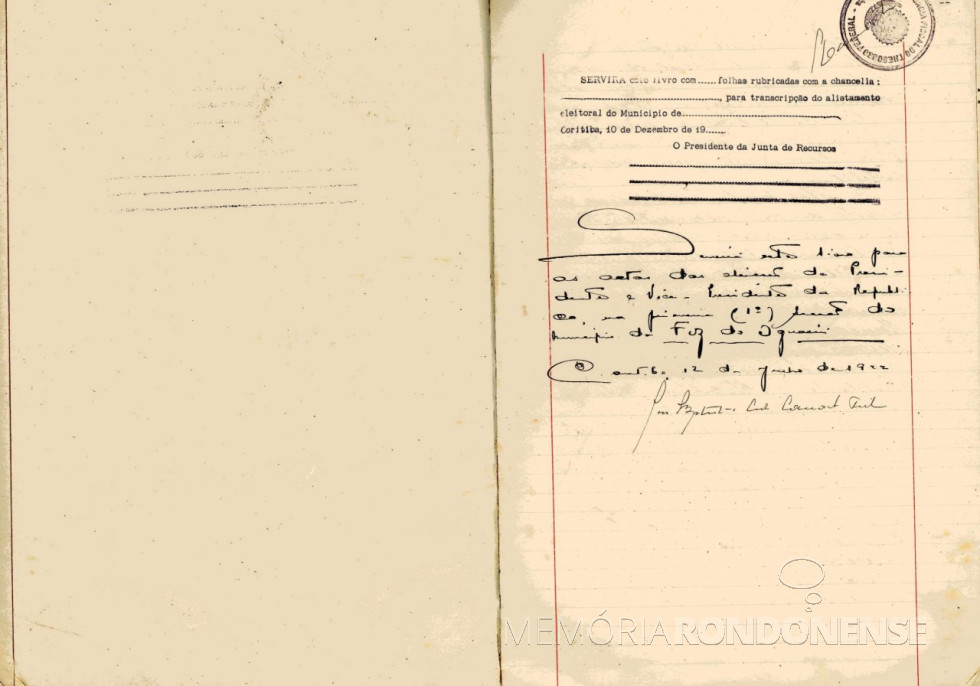 SERVIRÁ este livro com...... folhas rubricadas com a chancella:
..............................., para transcripção do alistamento
eleitoral do Municipio de...............................
Coritiba, 10 de Dezembro de 19......
O Presidente da Junta de Recursos
Servirá este livro para
as actas das de Presi-
dente e Vice-Presidente da Republi-
ca, na primeira (1ª) secção do
municipio de Foz do Iguassú
Corityba, 12 de de 1922
MEMÓRIARONDONENSE